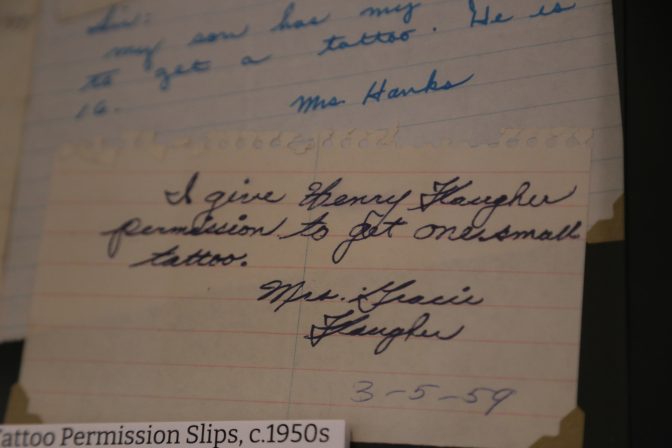 Sir:
my son has my
to get a tattoo. He is
16.
Mrs Hanks
I give Henry Flaugher
permission to get one small
tattoo.
Mrs. Gracie
Flaugher
3-5-59
Tattoo Permission Slips, c.1950s